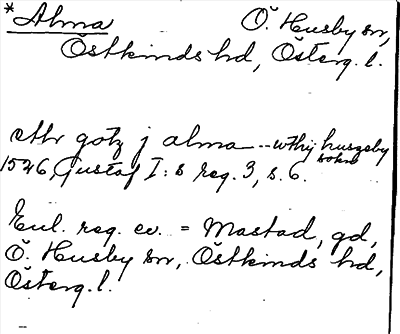 * Alma Ö. Husby sn,
Östkinds hd, Österg. l.
ett gotz j alma -- wthj huszby
sokn
1526, Gustaf I:s reg. 3, s. 6.
Enl. reg. ev. = Mastad, gd,
Ö. Husby sn, Östkinds hd,
Österg. l.